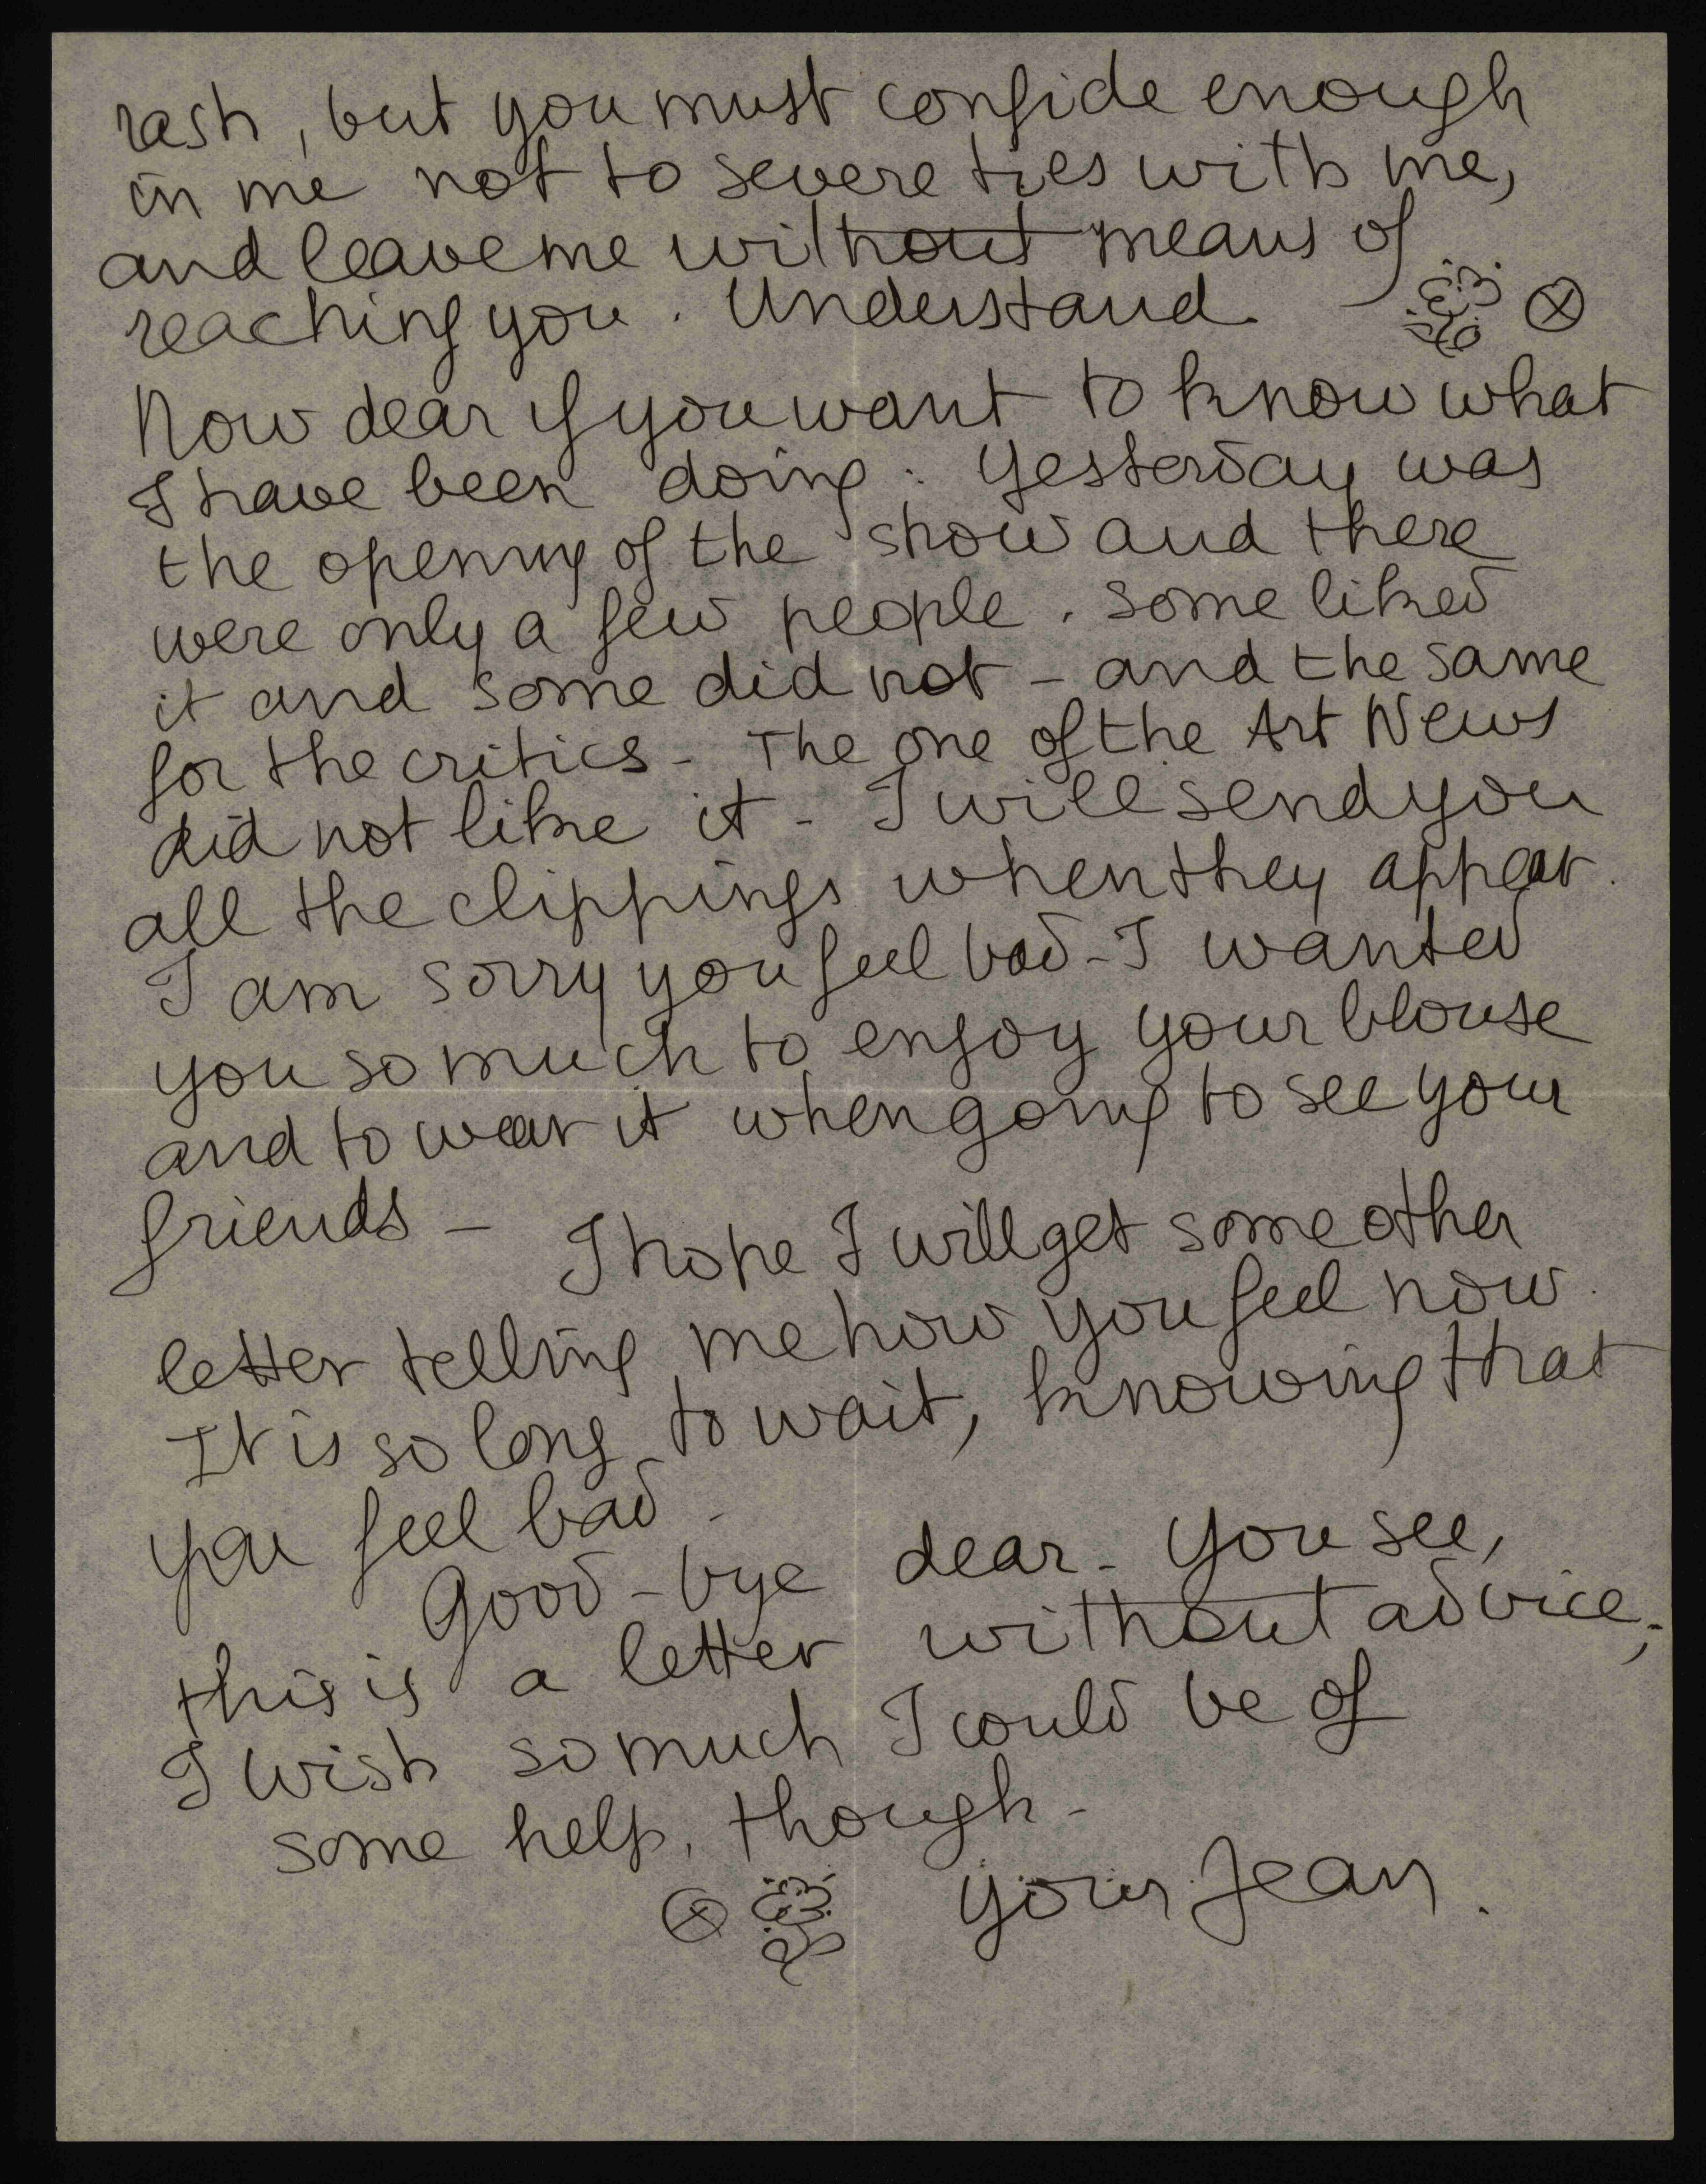 rash, but you must confide enough
in me not to severe ties with me,
and leave me without means of
reaching you. Understand.
Now dear if you want to know what
I have been doing: Yesterday was
the opening of the show and there
were only a few people. some liked
it and some did not - and the same
for the critics - The one of the Art News
did not like it - I will send you
all the clippings when they appear.
I am sorry you feel bad - I wanted
you so much to enjoy your blouse
and to wear it when going to see your
friends - I hope I will get some other
letter telling me how you feel now.
It is so long to wait, knowing that
you feel bad -
Good-bye dear - You see,
this is a letter without advice;
I wish so much I could be of
some help, though -
your Jean.